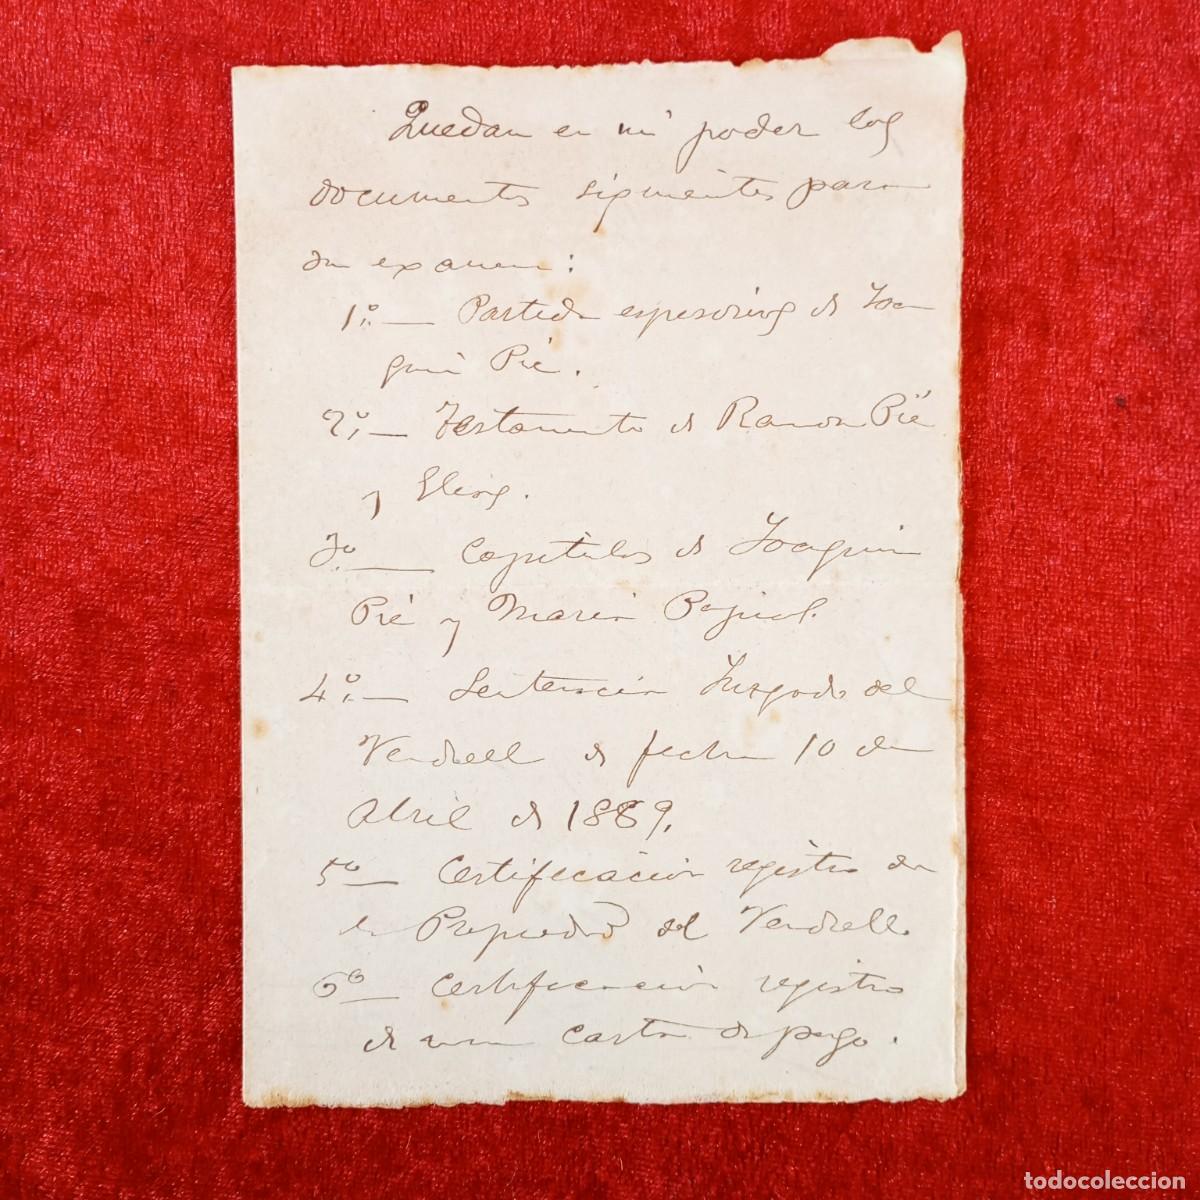 Quedan en mi poder los
documentos siguientes para
su examen:
1º.— Partida esponsorios de Joa
quin Pié.
2º.— Testamento de Ramon Pié
y
3º — Capitulos de Joaquin
Pié y Maria Pujol.
4º.— Sentencia Juzgado del
Vendrell de fecha 10 de
Abril de 1889.
5º — Certificación registro de
la Propiedad del Vendrell.
6º — Certificación registro
de una carta de pago.
todocoleccion